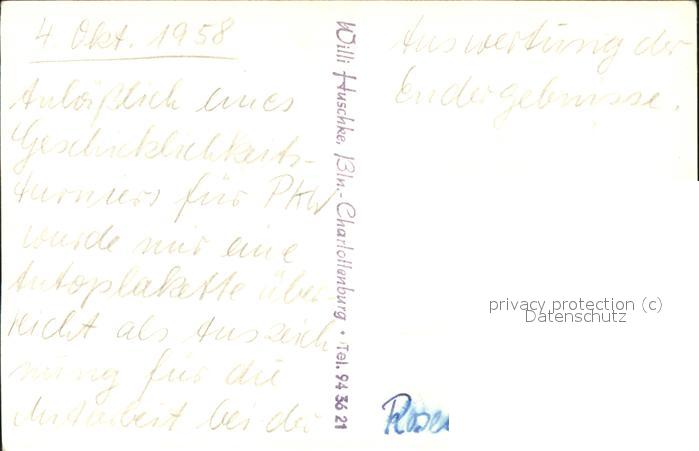 4. Okt. 1958
Anläßlich eines
Geschicklichkeits-
turniers für PKW
wurde mir eine
Autoplakette über-
reicht als Auszeich
nung für die
Mitarbeit bei der
Willi Huschke, Bln.-Charlottenburg • Tel. 94 36 21
Auswertung der
Endergebnisse.
privacy protection (c)
Datenschutz
Rosen